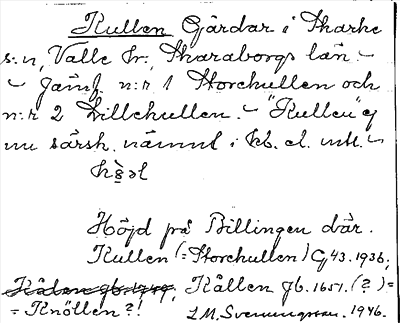 Kullen Gårdar i Skarke
s:n, Valle hr, Skaraborgs län. –
– Jämf. n:r 1 Storekullen och
n:r 2 Lillekullen. – "Kullen" ej
nu särsk. nämnt i kb. el. mtl. –
Höjd på Billingen där.
Kullen (= Storekullen) G 43. 1936;
Kållen Jb. 1651. (?) =
= Knöllen?! L M. Svenungsson. 1946.